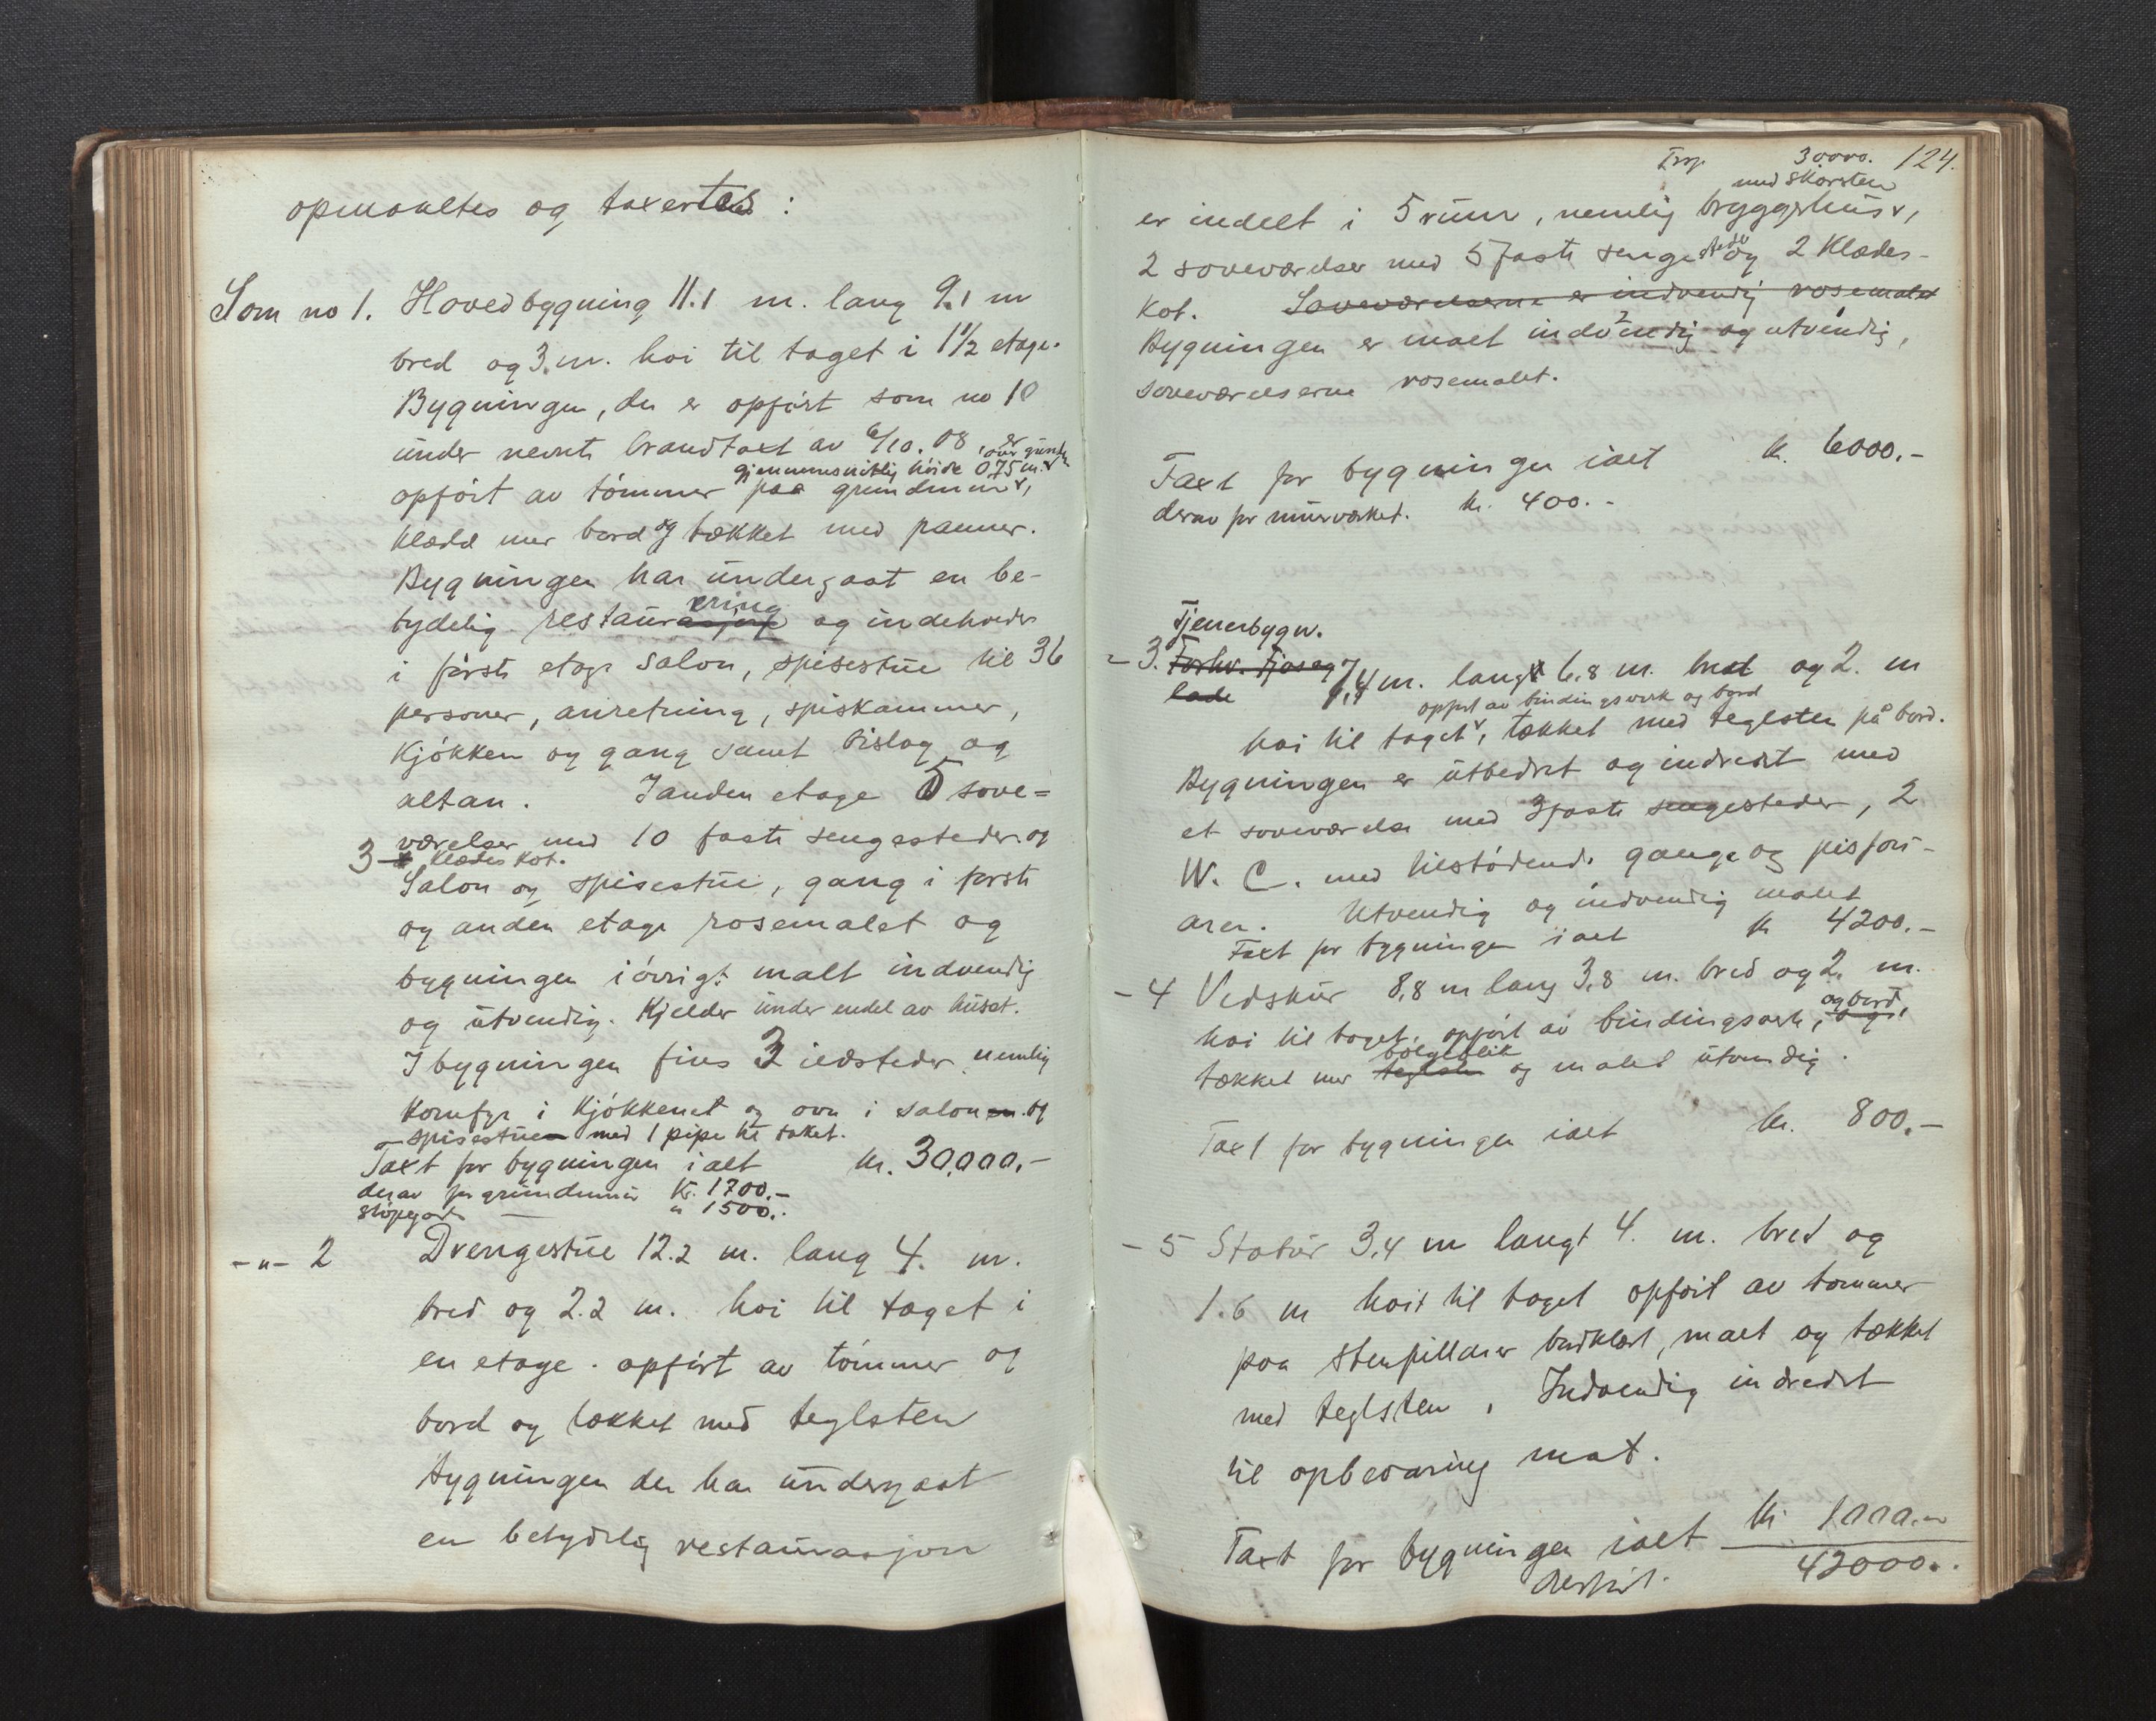 opmaaltes og taxertes:
Som no 1. Hovedbygning 11.1 m. lang 9.1 m
bred og 3. m. høi til taget i 1 1/2 etage.
Bygningen, der er opført som no 10
under nevnte brandtaxt av 6/10. 08, er
gjennemsnitlig høide 0.75 m.
opført av tømmer paa grundmur,
klædd mer bord og tækket med panner.
Bygningen har undergaat en be-
tydelig restaurering og indeholder
i første etage salon, spisestue til 36
personer, anretning, spiskammer,
kjøkken og gang samt bislag og
altan. I anden etage 5 sove=
værelser med 10 faste sengesteder og
3 klædeskot.
Salon og spisestue, gang i første
og anden etage rosemalet og
bygningen iøvrigt malt indvendig
og utvendig. Kjelder under endel av huset.
I bygningen fins 3 ildsteder nemlig
komfyr i kjøkkenet og ovn i salon og
spisestue med 1 pipe til taket.
Taxt for bygningen ialt kr. 30,000.-
derav for grundmur kr. 1700.-
" 1500.-
-"- 2 Drengestue 12.2 m. lang 4. m.
bred og 2.2 m. høi til taget i
en etage. opført av tømmer og
bord og tækket med teglsten
Bygningen der har undergaat
en betydelig restaurasjon
Trsp. 30000. 124.
med skorsten
er indelt i 5 rum, nemlig bryggerhus,
2 soveværelser med 5 faste sengesteder og 2 klædes-
kot. Soveværelserne er indvendig rosemalet
Bygningen er malt indvendig og utvendig,
soveværelserne rosemalet.
Taxt for bygningen ialt kr. 6000.-
derav for murværket. kr. 400.-
Tjenerbygn.
- 3. Forhv. Fjøs og 7,4 m. lang 6,8 m. bred og 2. m
lade
opført av bindingsverk og bord
høi til taget, tækket med teglsten på bord.
Bygningen er utbedret og indredt med
et soveværelse med 3 faste sengesteder, 2
W. C. med tilstødende gange og pisfou-
arer. Utvendig og indvendig malet
Taxt for bygningen ialt kr 4200.-
- 4 Vedskur 8,8 m lang 3,8 m. bred og 2. m.
høi til taget, opført av bindingsverk, og bord,
bølgeblik
tækket mer teglsten og malet utvendig.
Taxt for bygningen ialt kr. 800.-
- 5 Stabur 3,4 m langt 4. m. bred og
1.6 m høit til taget opført av tømmer
paa stenpillarer bordklædt, malt og tækket
med teglsten, Indvendig indredt
til opbevaring mat.
Taxt for bygningen ialt kr 1000.-
42000.-